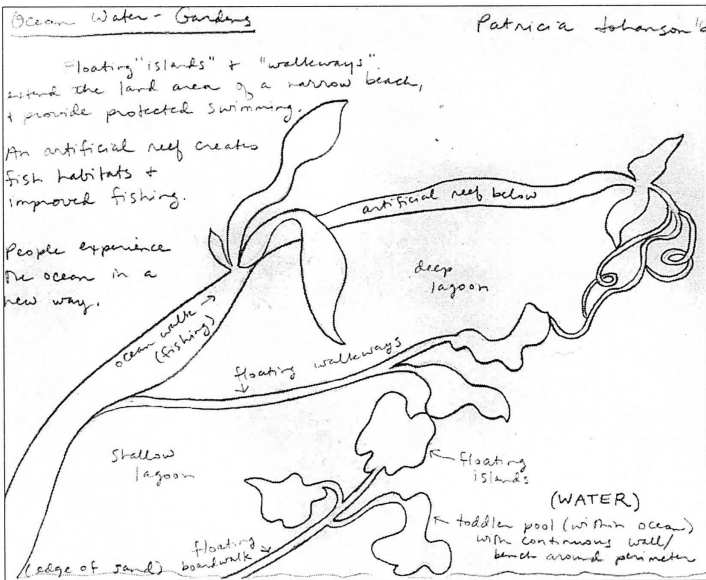 Ocean Water-Gardens
Patricia Johanson
Floating "islands" + "walkways"
extend the land area of a narrow beach,
+ provide protected swimming.
An artificial reef creates
fish habitats +
improved fishing.
People experience
the ocean in a
new way.
artificial reef below
deep
lagoon
ocean walk →
(fishing)
floating walkways
shallow
lagoon
floating
islands
(WATER)
toddler pool (within ocean)
with continuous wall/
bench around perimeter
floating
boardwalk
(edge of sand)